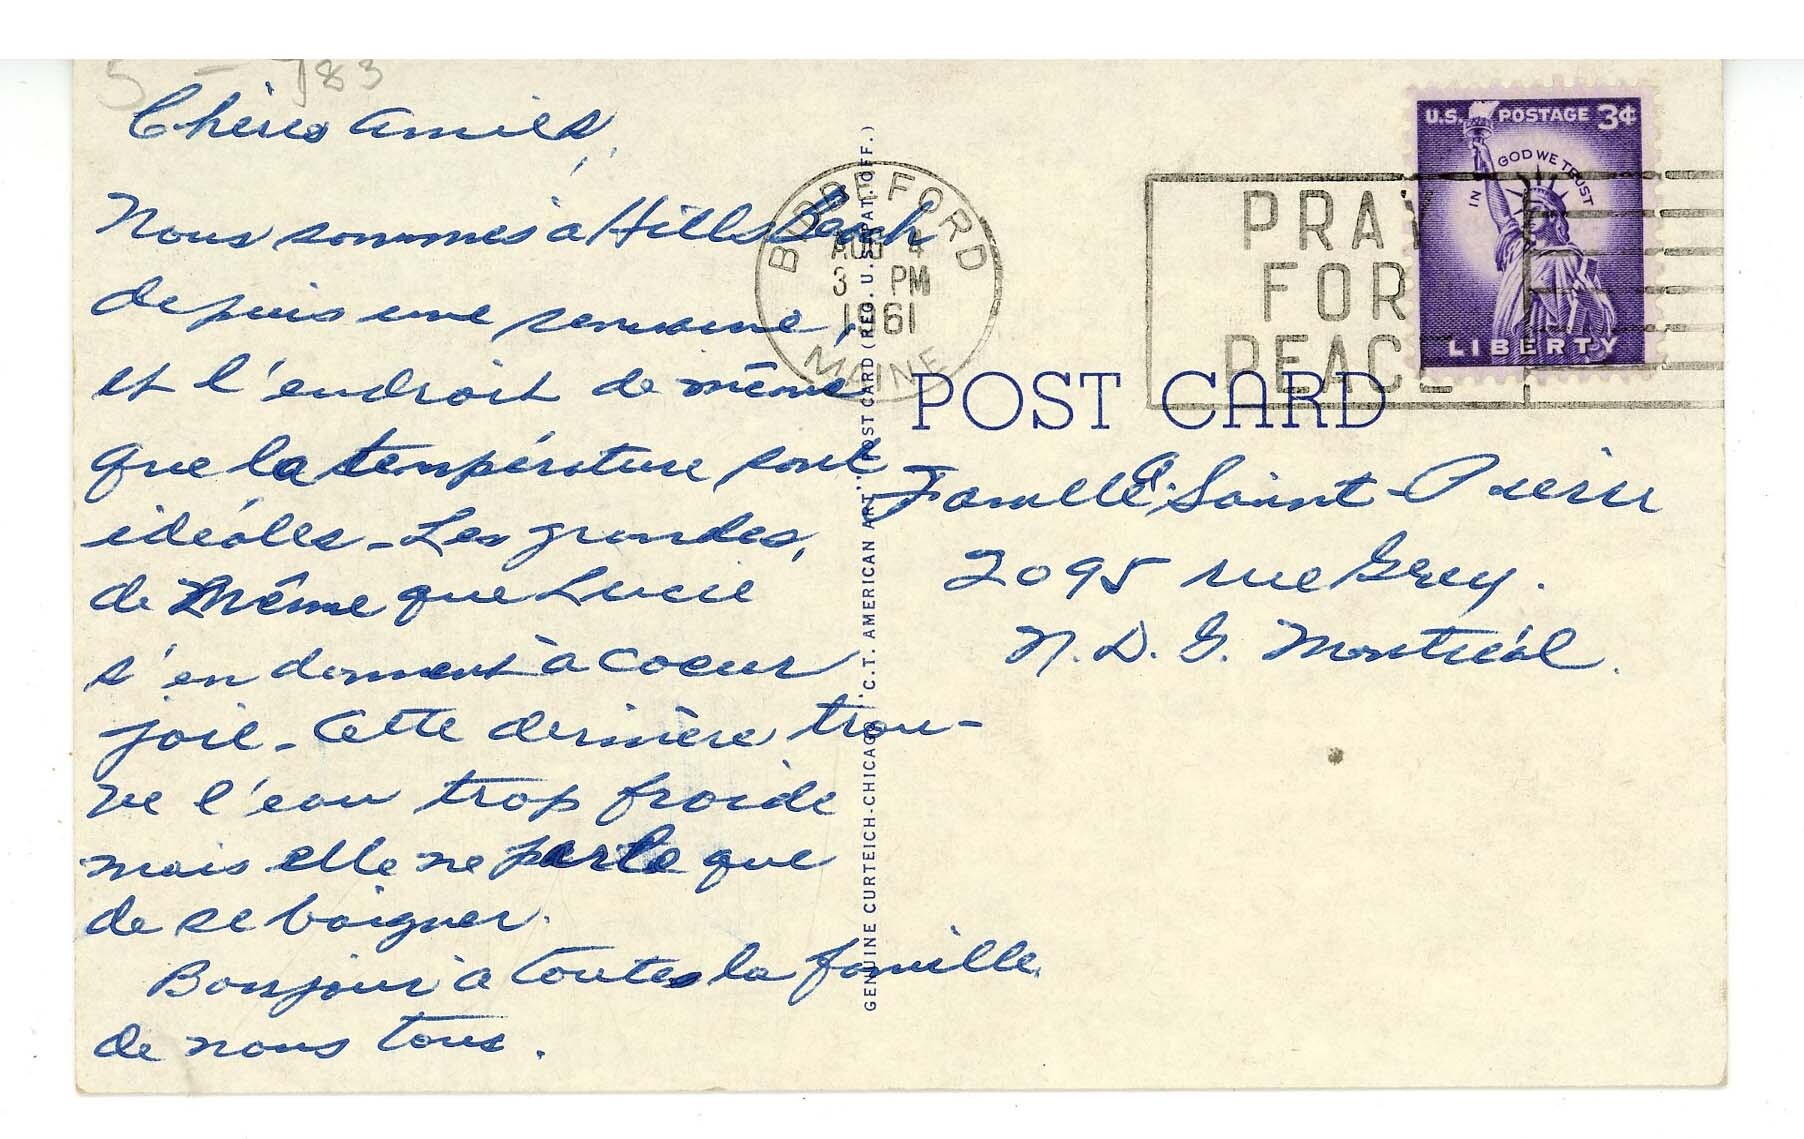 5 - 783
Chères amies,
Nous sommes à Hills Beach
depuis une semaine,
et l'endroit de même
que la température sont
idéales - Les grandes,
de même que Lucie
s'en donnent à coeur
joie - Cette dernière trou-
ve l'eau trop froide
mais elle ne parle que
de se baigner.
Bonjour à toutes la famille
de nous tous.
BIDDEFORD
AUG 4
3 PM
1961
MAINE
PRAY
FOR
PEACE
U.S. POSTAGE 3¢
IN GOD WE TRUST
LIBERTY
POST CARD
Famille Saint-Pierre
2095 rue Grey.
N.D.G. Montréal.
GENUINE CURTEICH-CHICAGO "C.T. AMERICAN ART" POST CARD (REG. U.S. PAT. OFF.)